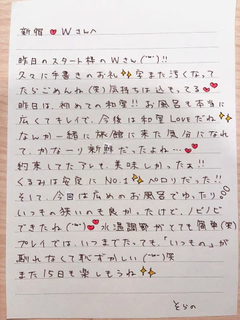 新宿❤Wさんへ
昨日のスタート枠のWさん(˘³˘)!!
久々に手書きのお礼✨字また汚くなって
たらごめんね(笑)気持ちは込もってる❤❤
昨日は、初めての和室!!お風呂も本当に
広くてキレイで、今後は和室LOVEだね
なんか一緒に旅館に来た気分になれ
て、かな〜り新鮮だったよね…❤
約束してたアレも、美味しかったぁ!!
くるみは安定にNo.1❤ペロリだった!!
そして、今回は広めのお風呂でゆったり。
いつもの狭いのも良かったけど、ノビノビ
できたね(˘³˘)❤水温調整がとても簡単(笑)
プレイでは、いつまでたっても、「いつもの」が
馴れなくて恥ずかしい(˘³˘)笑
また15日も楽しもうね✨✨
そらの